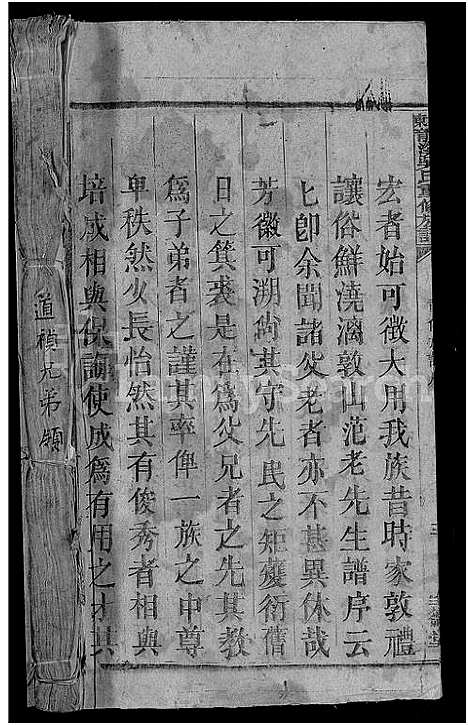 宏者始可徵大用我族昔時家敦禮
讓俗鮮澆漓敦山范老先生譜序云
匕卽余聞諸父老者亦不甚異休哉
芳徽可溯尙其守先民之矩矱衍舊
日之箕裘是在爲父兄者之先其教
爲子弟者之謹其率俾一族之中尊
卑秩然少長怡然其有俊秀者相與
培成相與保諭使成爲有用之才其
道禎兄弟領
FamilySearch